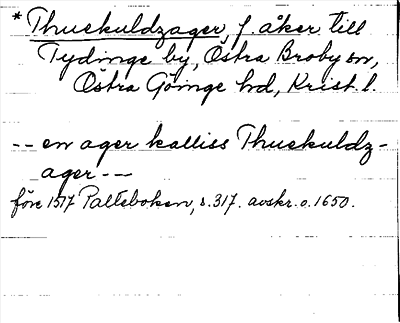 *Thuekuldzager, f. åker till
Tydinge by, Östra Broby sn,
Östra Göinge hd, Krist. l.
-- en ager kalliss Thuekuldz-
ager --
före 1517 Palteboken, s. 317. avskr. o. 1650.